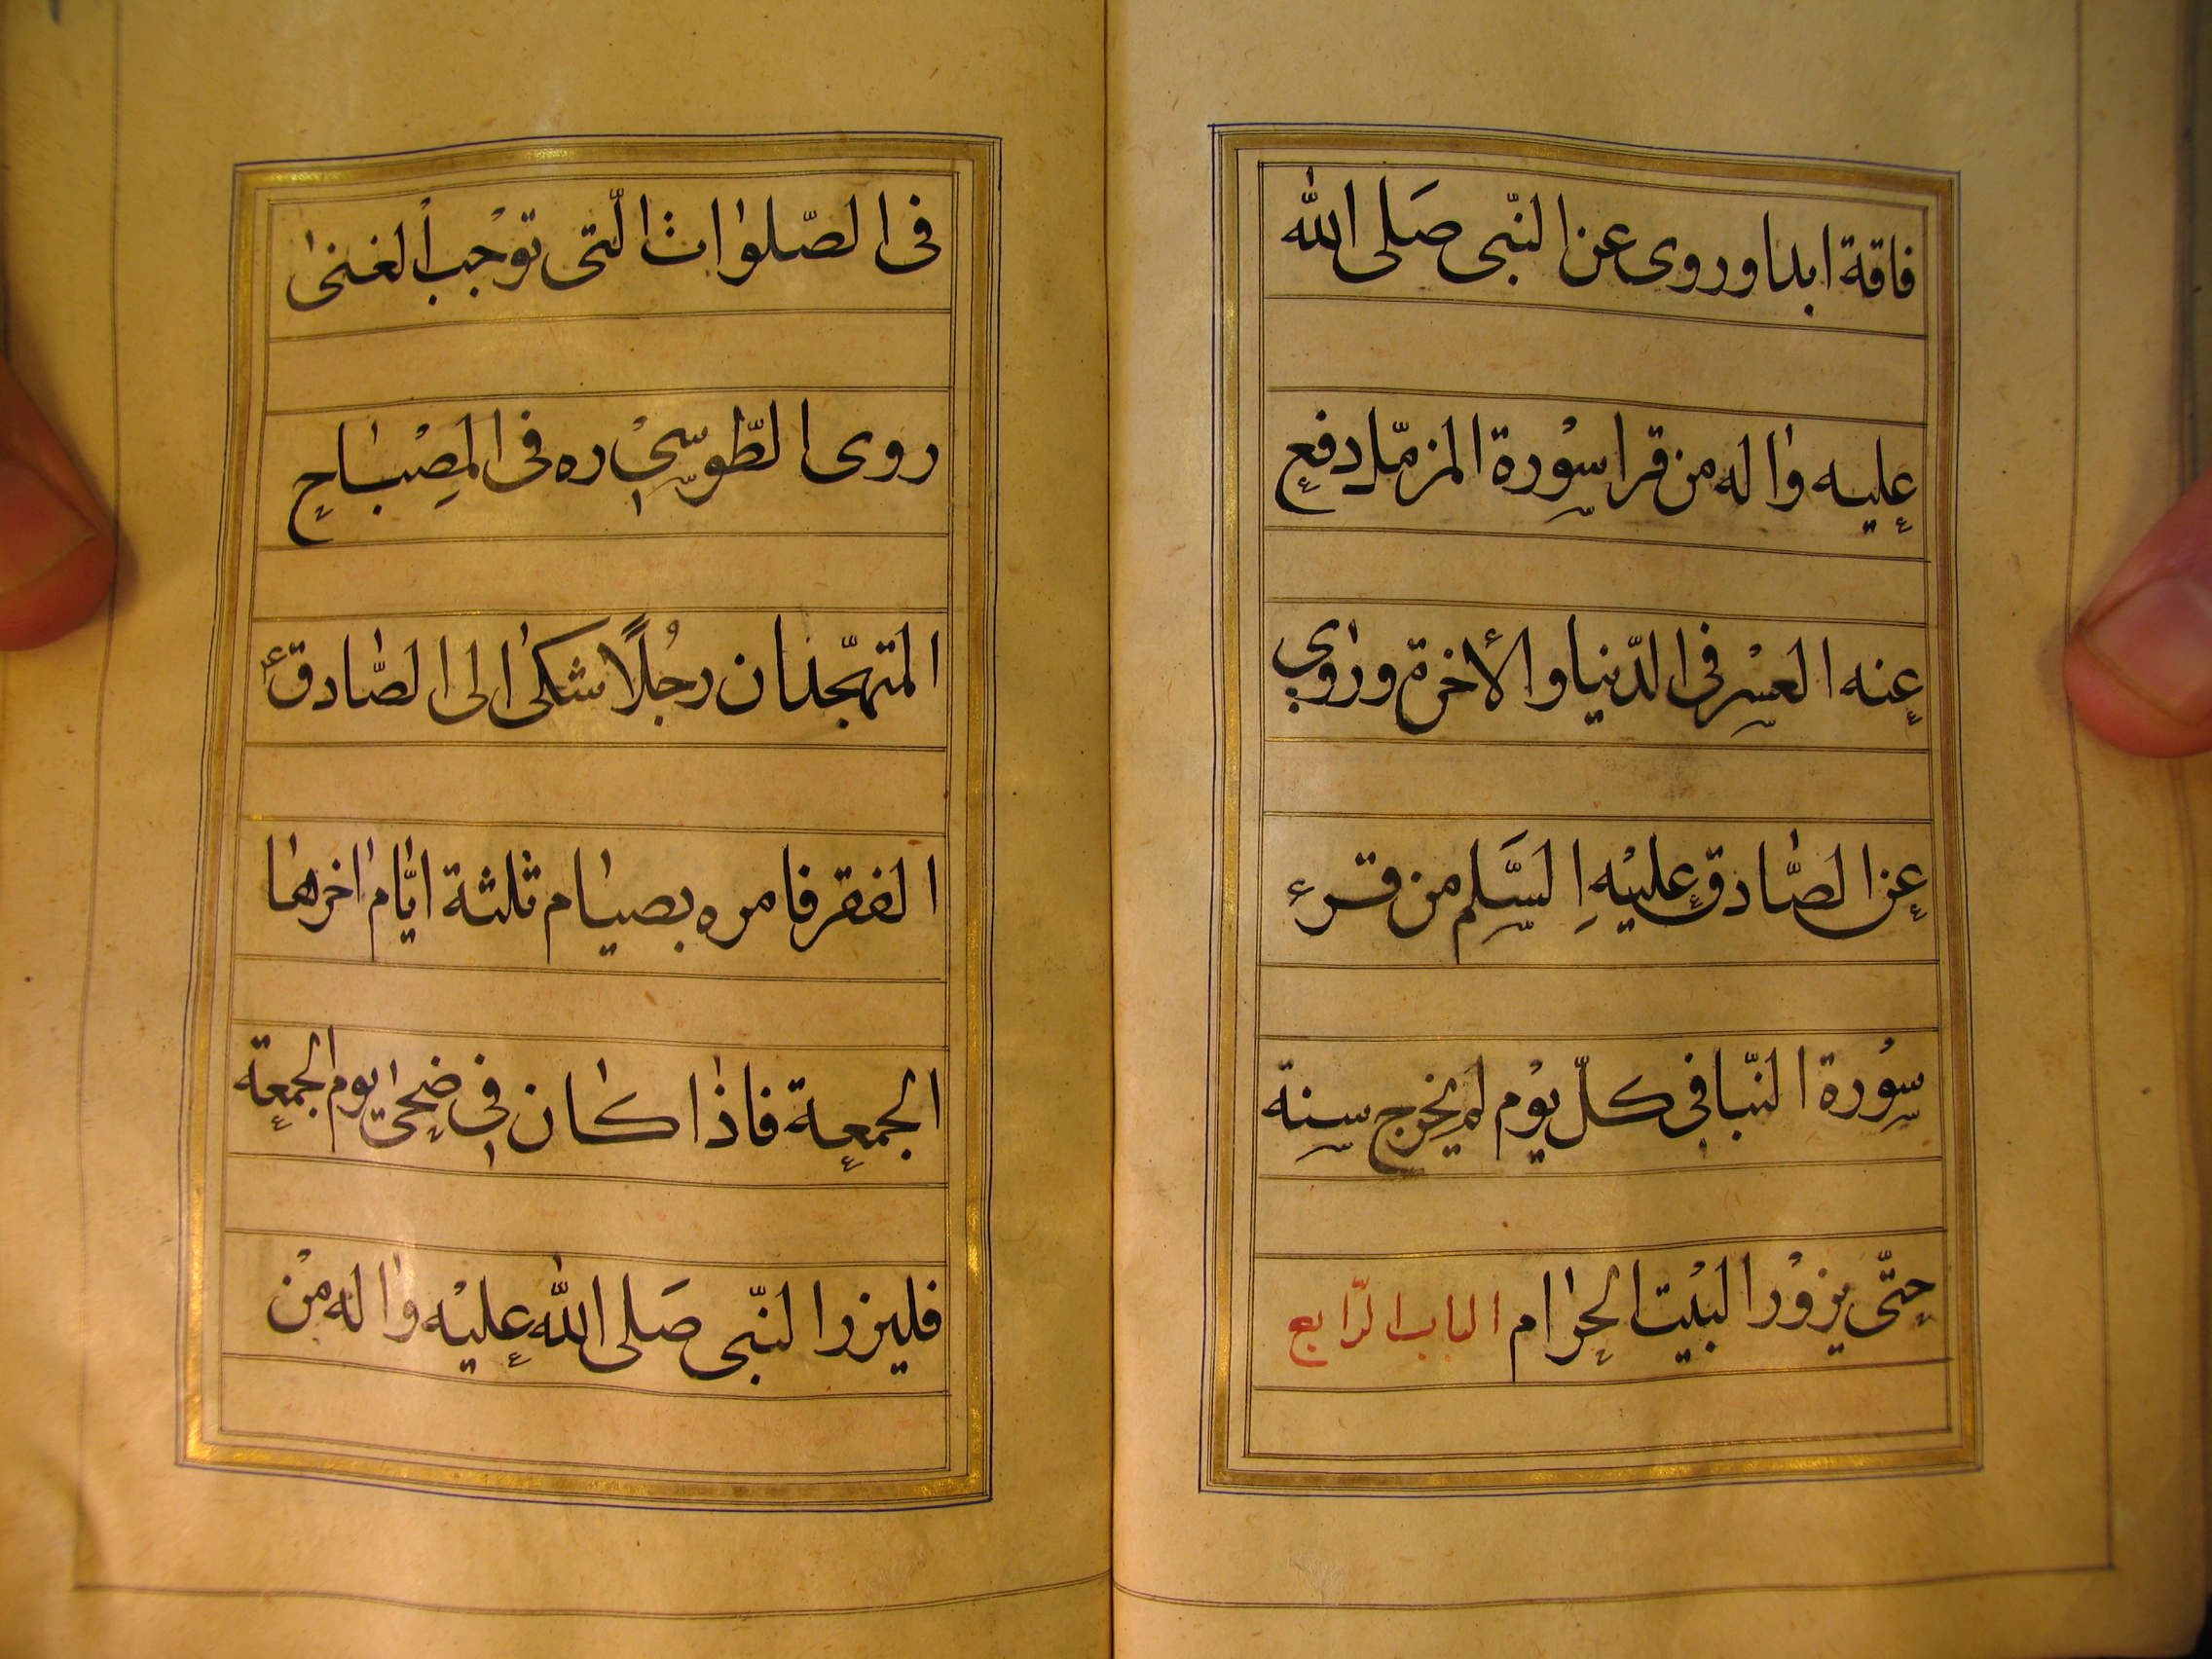 فاقة ابدا وروى عن النّبى صَلى الله
عليه واٰله من قرا سوْرة المزمّل دفع
عنه العسْر فى الدّنيا والأخرة وروى
عن الصّادق عليْه السَّلم من قرء
سوُرة النّبا فى كلّ يوْم لم يخرج سنة
حتّى يزوْر البيْت الحرام الباب الرّابع
فى الصّلوات الّتى توْجب الغنىٰ
روى الطّوسىْ ره فى المِصْباح
المتهجّد ان رجُلًا شكىٰ الى الصّادق ع
الفقر فامره بصيام ثلثة ايّام اٰخرها
الجمعة فاذا كان فى ضحى يوم الجمعة
فليزر النّبى صَلى الله عليْه واٰله منْ